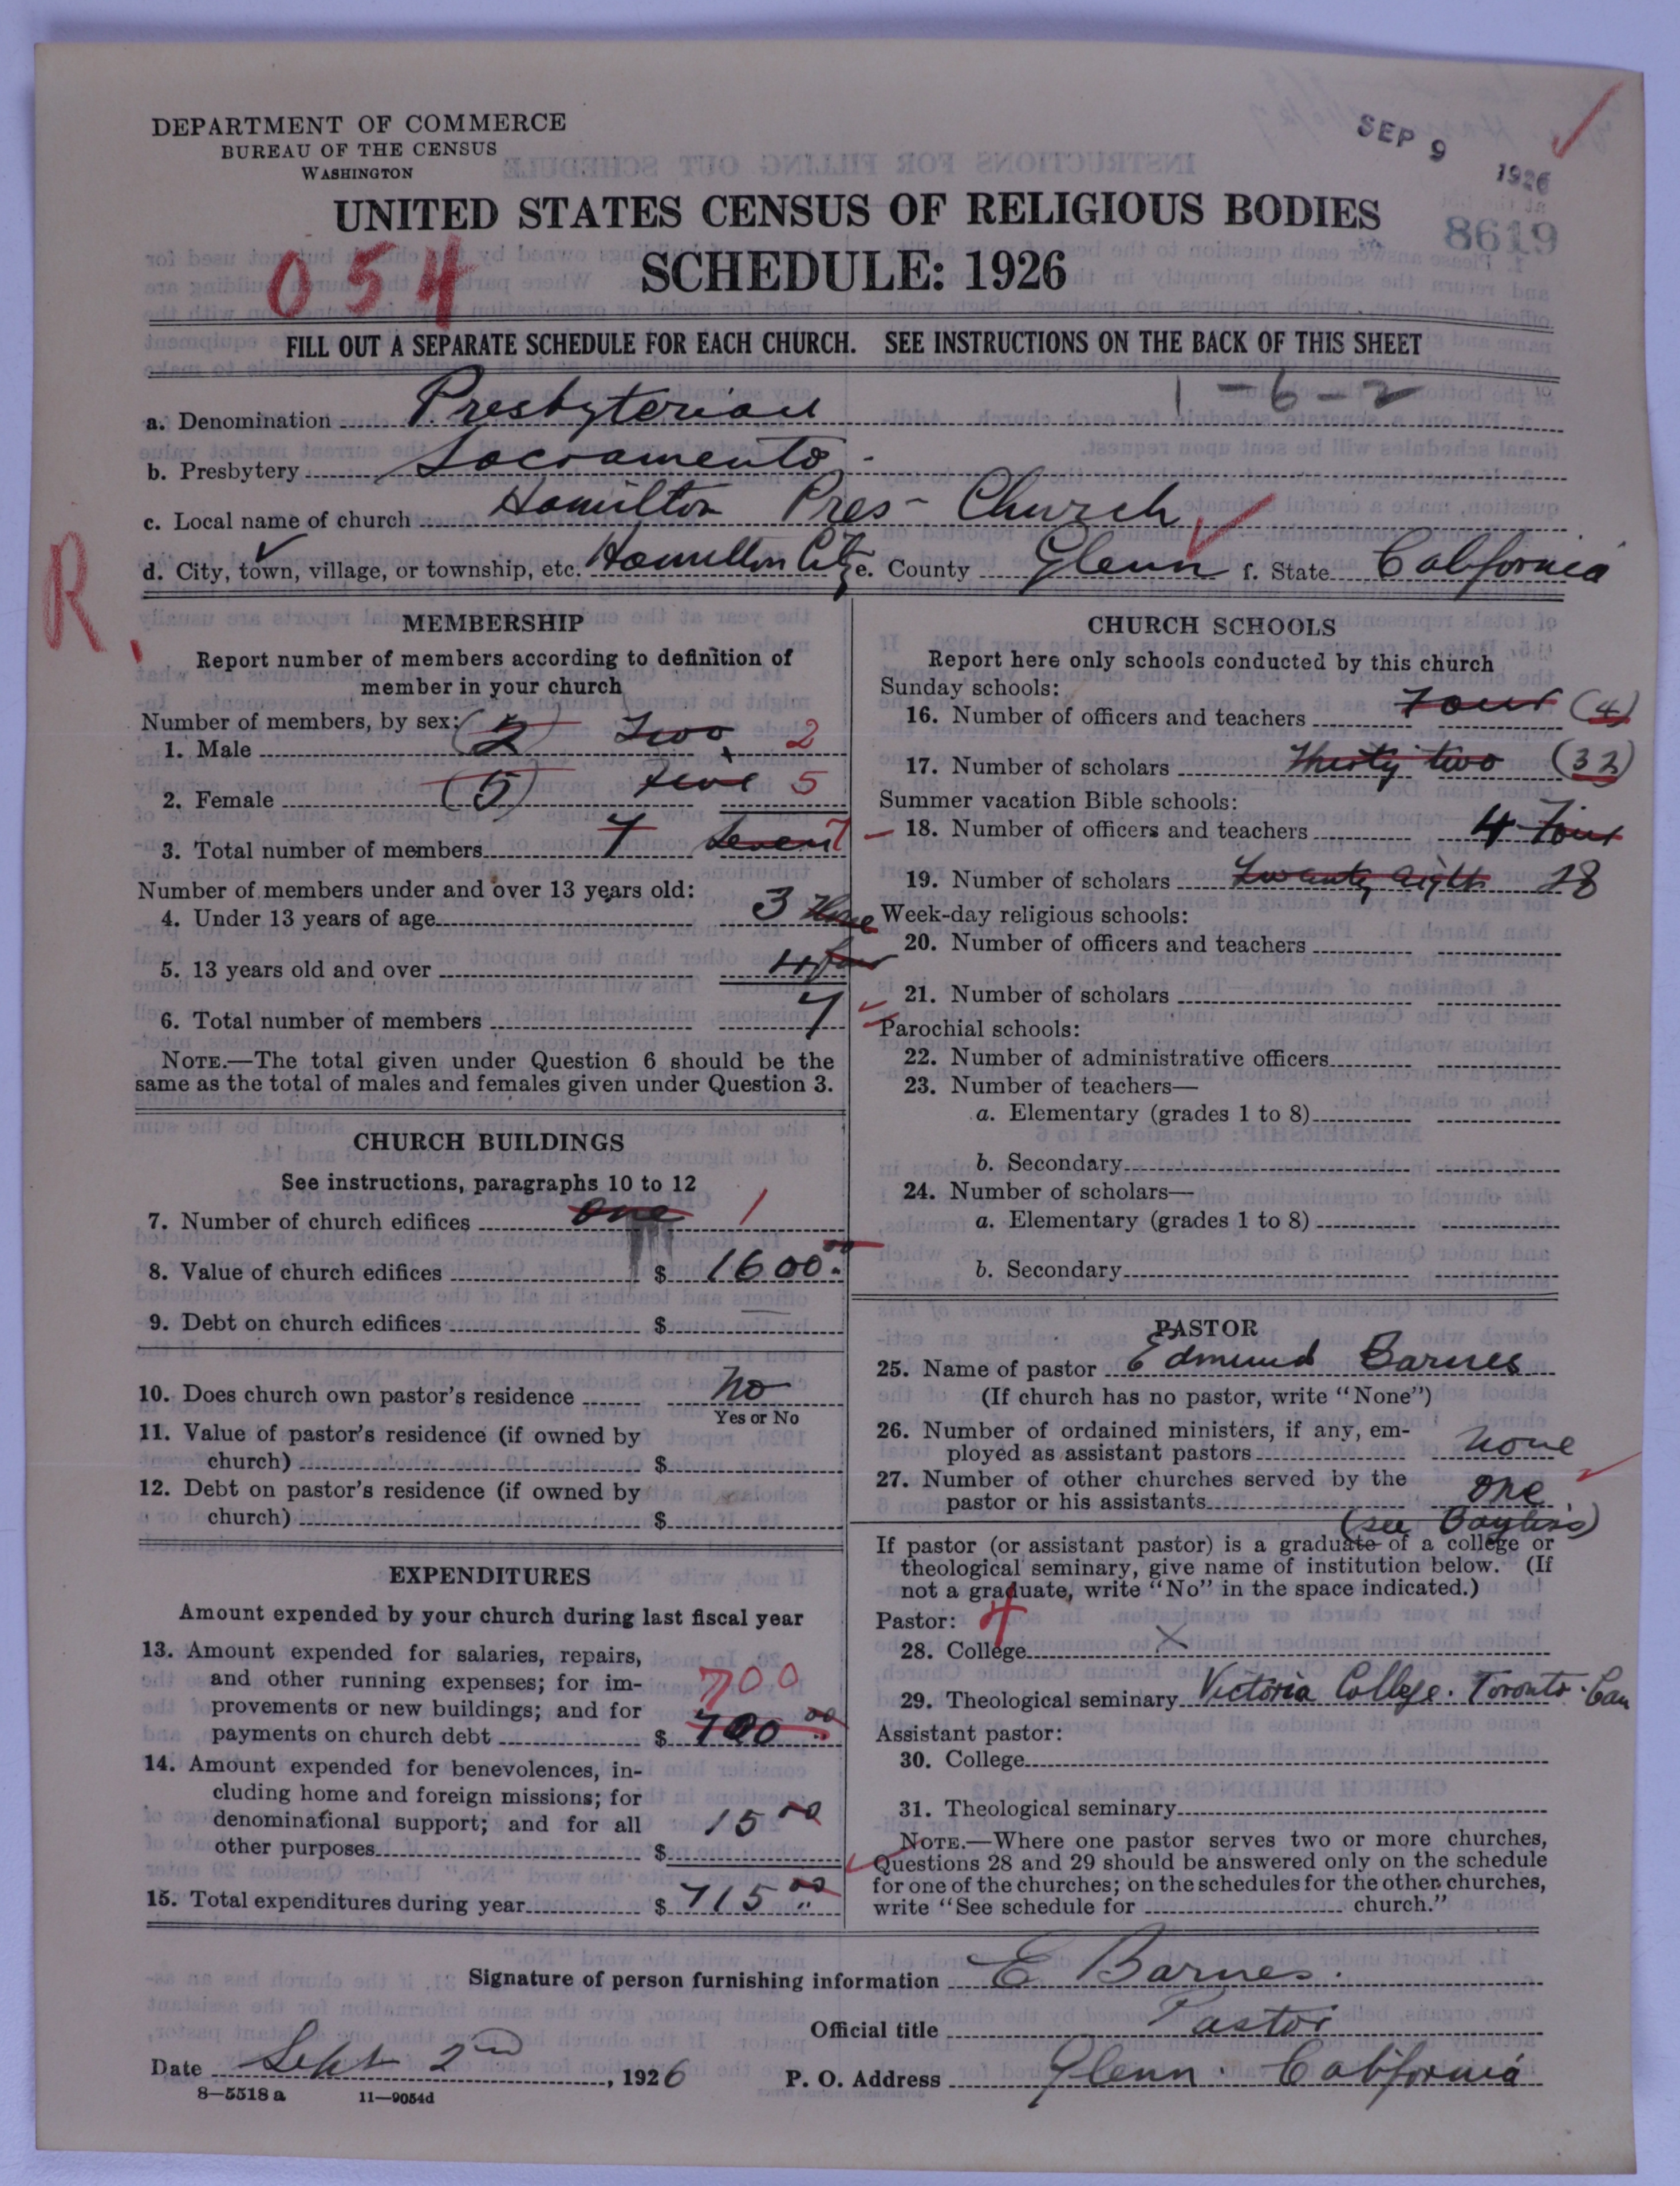 DEPARTMENT OF COMMERCE
BUREAU OF THE CENSUS
WASHINGTON
SEP 9 1926
UNITED STATES CENSUS OF RELIGIOUS BODIES
8619
054
SCHEDULE: 1926
FILL OUT A SEPARATE SCHEDULE FOR EACH CHURCH. SEE INSTRUCTIONS ON THE BACK OF THIS SHEET
a. Denomination Presbyterian 1-6-2
b. Presbytery Sacramento
c. Local name of church Hamilton Pres- Church
d. City, town, village, or township, etc. Hamilton City e. County Glenn f. State California
R.
MEMBERSHIP
Report number of members according to definition of
member in your church
Number of members, by sex:
1. Male (2) Two 2
2. Female (5) five 5
3. Total number of members 7 Seven 7
Number of members under and over 13 years old:
4. Under 13 years of age 3 Three
5. 13 years old and over 4 four
6. Total number of members 7
NOTE.—The total given under Question 6 should be the
same as the total of males and females given under Question 3.
CHURCH BUILDINGS
See instructions, paragraphs 10 to 12
7. Number of church edifices one 1
8. Value of church edifices $ 1600.00
9. Debt on church edifices $ —
10. Does church own pastor's residence No
Yes or No
11. Value of pastor's residence (if owned by
church) $
12. Debt on pastor's residence (if owned by
church) $
EXPENDITURES
Amount expended by your church during last fiscal year
13. Amount expended for salaries, repairs,
and other running expenses; for im-
provements or new buildings; and for
payments on church debt $ 700 00
700
14. Amount expended for benevolences, in-
cluding home and foreign missions; for
denominational support; and for all
other purposes $ 15 00
15. Total expenditures during year $ 715 00
CHURCH SCHOOLS
Report here only schools conducted by this church
Sunday schools:
16. Number of officers and teachers Four (4)
17. Number of scholars Thirty two (32)
Summer vacation Bible schools:
18. Number of officers and teachers 4 Four
19. Number of scholars Twenty eight 28
Week-day religious schools:
20. Number of officers and teachers
21. Number of scholars
Parochial schools:
22. Number of administrative officers
23. Number of teachers—
a. Elementary (grades 1 to 8)
b. Secondary
24. Number of scholars—
a. Elementary (grades 1 to 8)
b. Secondary
PASTOR
25. Name of pastor Edmund Barnes
(If church has no pastor, write "None")
26. Number of ordained ministers, if any, em-
ployed as assistant pastors none
27. Number of other churches served by the
pastor or his assistants one
(see Bayliss)
If pastor (or assistant pastor) is a graduate of a college or
theological seminary, give name of institution below. (If
not a graduate, write "No" in the space indicated.)
Pastor: 4
28. College X
29. Theological seminary Victoria College. Toronto. Can
Assistant pastor:
30. College
31. Theological seminary
NOTE.—Where one pastor serves two or more churches,
Questions 28 and 29 should be answered only on the schedule
for one of the churches; on the schedules for the other churches,
write "See schedule for church."
Signature of person furnishing information E Barnes.
Official title Pastor
Date Sept 2nd, 1926 P. O. Address Glenn California
8-5518 a 11-9054d